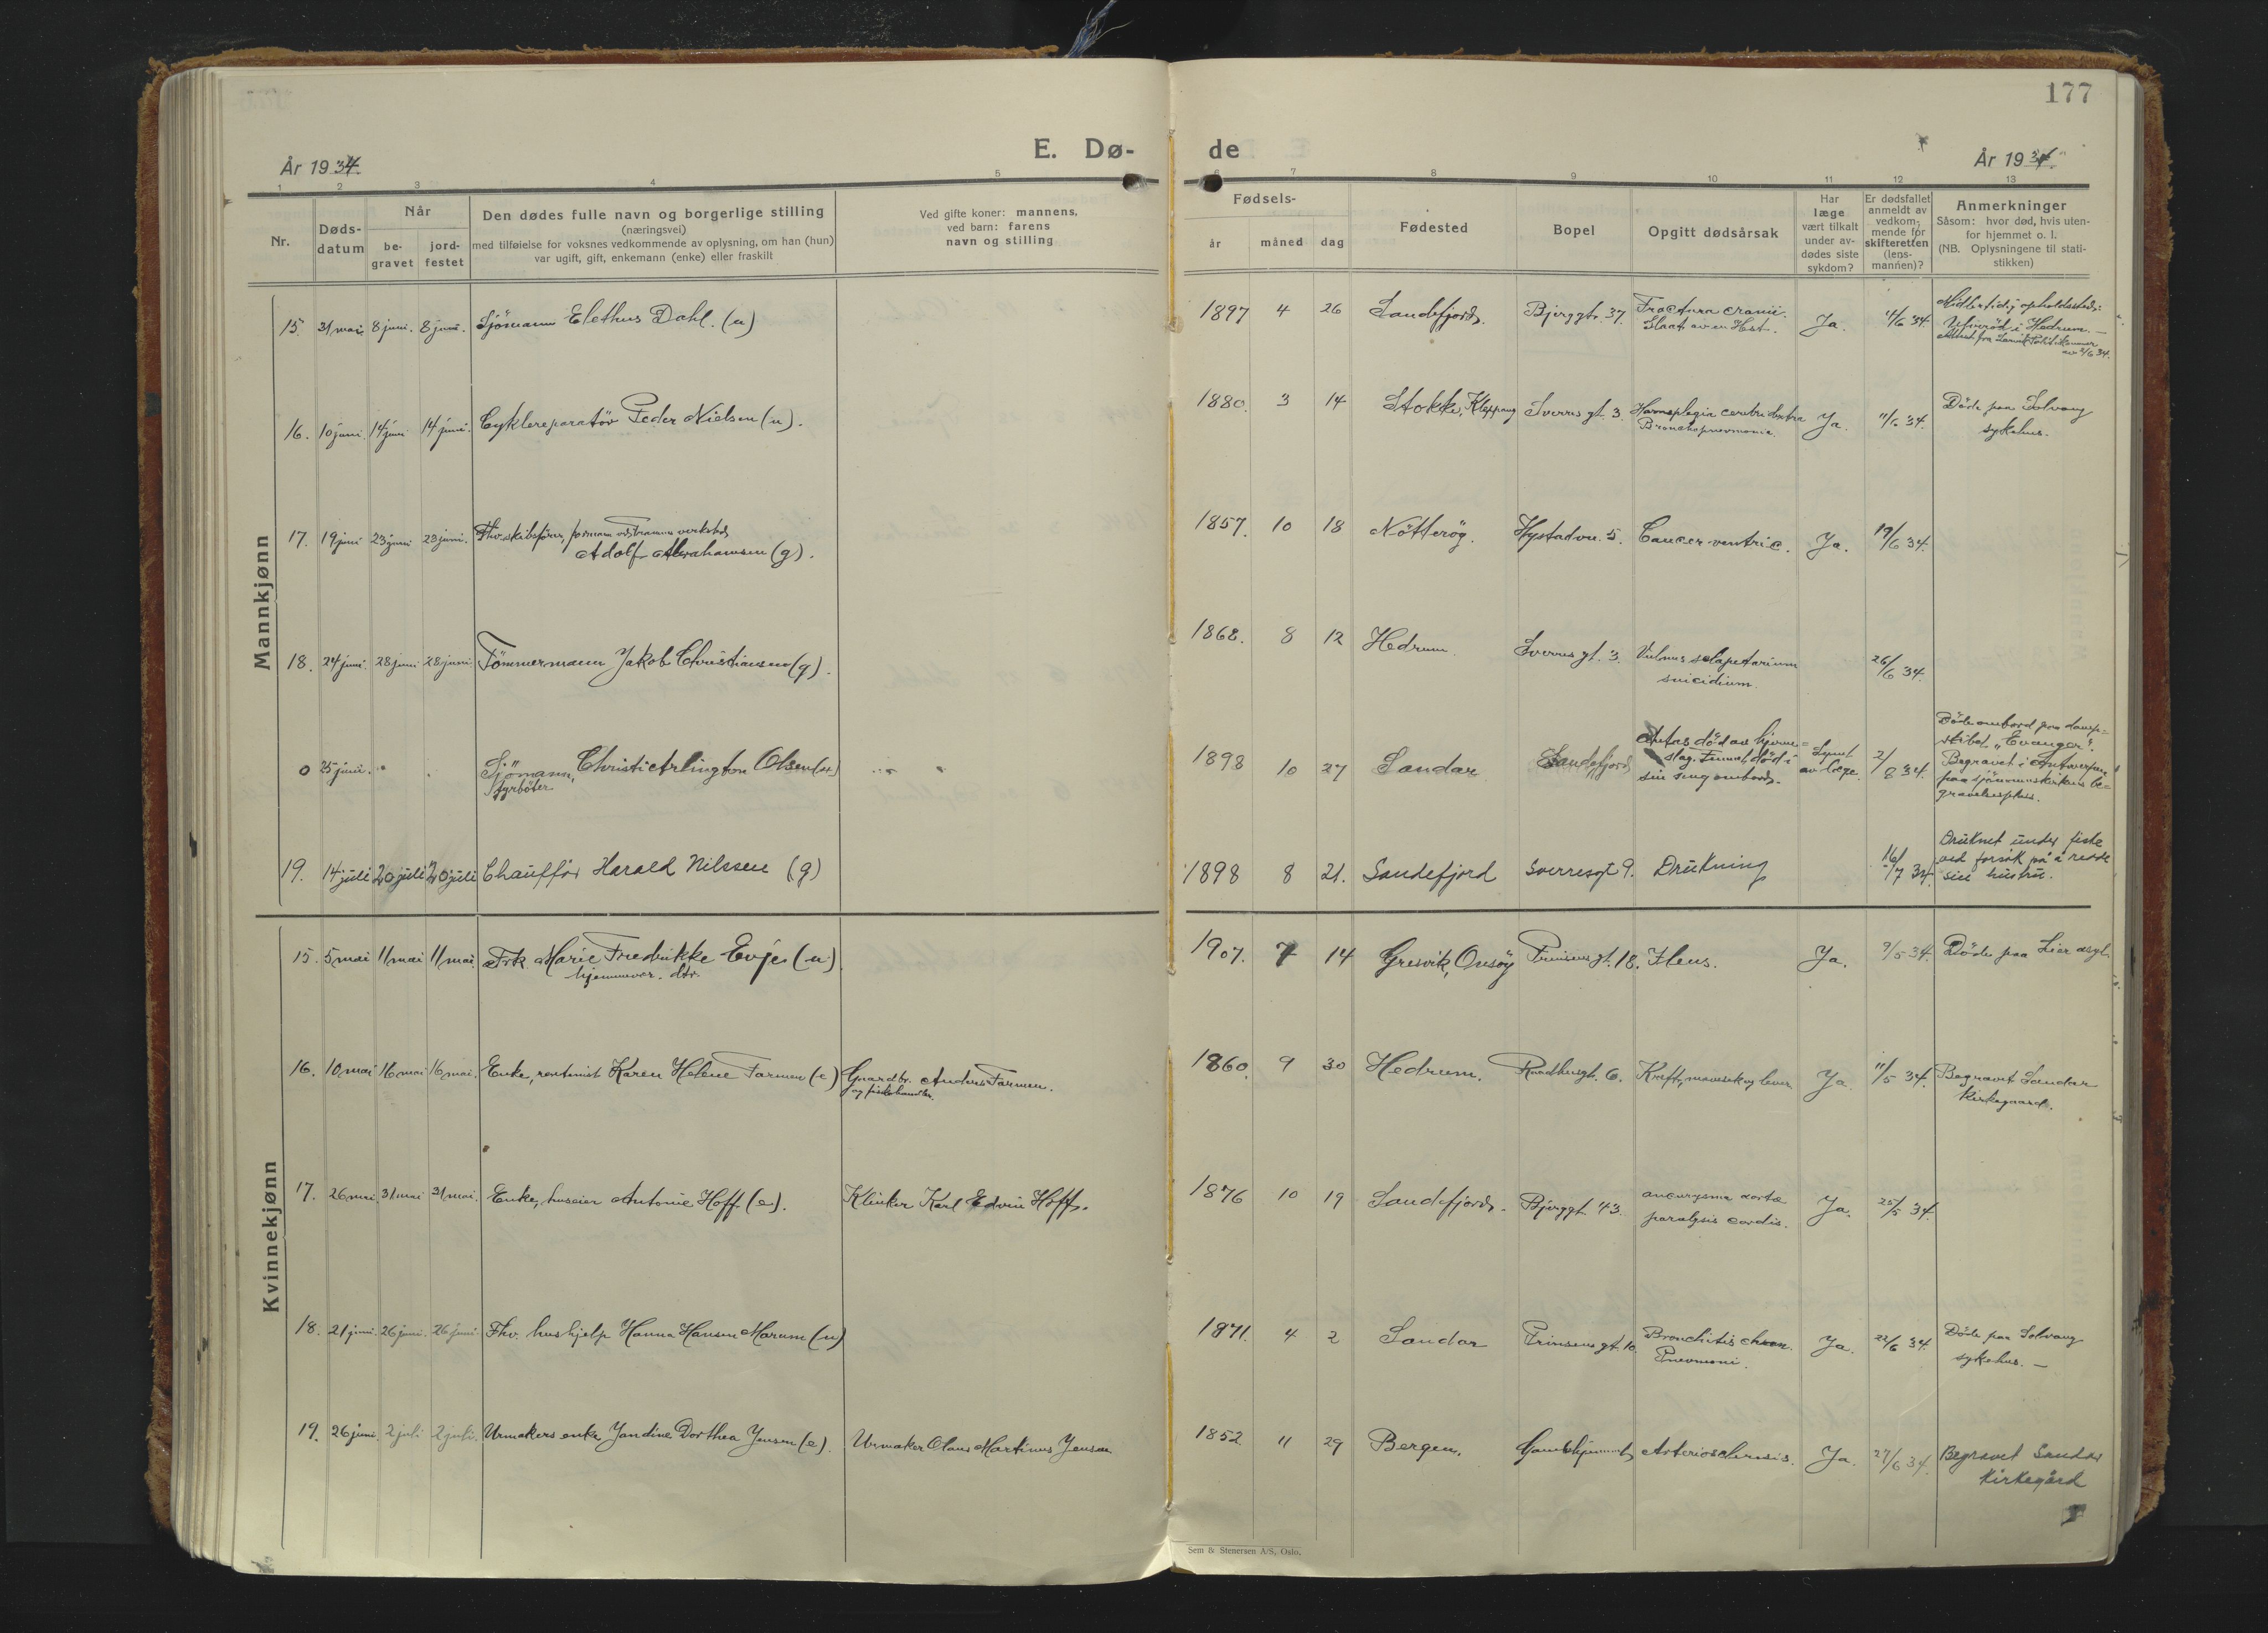 177
År 1934.
E. Dø-
de
År 1934.
1 2 3 4 5 6 7 8 9 10 11 12 13
Nr.
Døds-
datum
Når
be-
gravet
jord-
festet
Den dødes fulle navn og borgerlige stilling
(næringsvei)
med tilføielse for voksnes vedkommende av oplysning, om han (hun)
var ugift, gift, enkemann (enke) eller fraskilt
Ved gifte koner: mannens,
ved barn: farens
navn og stilling
Fødsels-
år
måned
dag
Fødested
Bopel
Opgitt dødsårsak
Har
læge
vært tilkalt
under av-
dødes siste
sykdom?
Er dødsfallet
anmeldt av
vedkom-
mende for
skifteretten
(lens-
mannen)?
Anmerkninger
Såsom: hvor død, hvis uten-
for hjemmet o. l.
(NB. Oplysningene til stati-
stikken)
Mannkjønn
15. 31 mai 8 juni. 8 juni. Sjömann Elethus Dahl. (u)
1897 4 26 Sandefjord. Bjerggt. 37. Fractura cranii.
Slaat av en Hest.
Ja. 4/6 34.
Midlertidig opholdssted:
i Hedrum. —
fra Larvik Politikammer
av 2/6 34.
16. 10 juni 14 juni 14 juni. Cyklereparatör Peder Nielsen (u).
1880. 3 14 Stokke, Kleppang Sverres gt. 3. Hæmiplegia cerebri dextra
Bronchopnevmonia.
Ja. 11/6 34.
Döde paa Solvang
sykehus.
17. 19 juni 23 juni 23 juni. Fhv. skibsförer, formann ved Framnæs verksted
Adolf Abrahamsen (g).
1857. 10 18 Nötteröy. Hystadvn. 5. Cancer ventric. Ja. 19/6 34.
18. 24 juni. 28 juni 28 juni. Tömmermann Jakob Christiansen (g).
1868. 8 12 Hedrum. Sverres gt. 3. Vulnus sclopetarium
suicidium.
26/6 34.
0 25 juni. Sjömann, Christie Arlington Olsen
fyrböter
1898 10 27 Sandar Sandefjord
Antas död av hjerne=
slag. Funnet död i
sin seng ombord.
Synet
av læge.
2/8 34.
Döde ombord paa damp=
skibet "Evanger".
Begravet i Antwerpen
paa sjömannskirkens be=
gravelsesplass.
19. 14 juli 20 juli 20 juli Chaufför Harald Nilssen (g)
1898 8 21. Sandefjord Sverresgt 9. Drukning 16/7 34.
Druknet under fiske
ved forsök på å redde
sin hustru.
Kvinnekjønn
15. 5 mai 11 mai 11 mai. Frk. Marie Fredrikke Evje (u)
hjemmevær. dtr.
1907. 7 14 Gresvik, Onsöy Prinsens gt. 18. Ileus. Ja. 9/5 34. Döde paa Lier asyl.
16. 10 mai 16 mai 16 mai. Enke, rentenist Karen Helene Farmen (e) Gaardbr. Anders Farmen.
og fiskehandler.
1860. 9 30 Hedrum. Raadhusgt. 6. Kræft, mavesæk og lever Ja. 11/5 34. Begravet Sandar
Kirkegaard.
17. 26 mai 31 mai 31 mai. Enke, huseier Antonie Hoff (e). Klinker Karl Edvin Hoff.
1876 10 19 Sandefjord. Bjerggt. 43. aneurysma aortæ
paralysis cordis.
Ja. 25/5 34.
18. 21 juni. 26 juni. 26 juni. Fhv. hushjelp Hanna Hansen Marum (u)
1871. 4 2 Sandar Prinsens gt. 10. Bronchitis chron.
Pnevmoni.
Ja. 22/6 34. Döde paa Solvang
sykehus. —
19. 26 juni. 2 juli 2 juli. Urmakers enke Jandine Dorthea Jensen (e). Urmaker Olaus Martinus Jensen
1852. 11 29 Bergen. Gamlehjemmet Arteriosclerosis. Ja. 27/6 34. Begravet Sandar
Kirkegård
Sem & Stenersen A/S, Oslo.